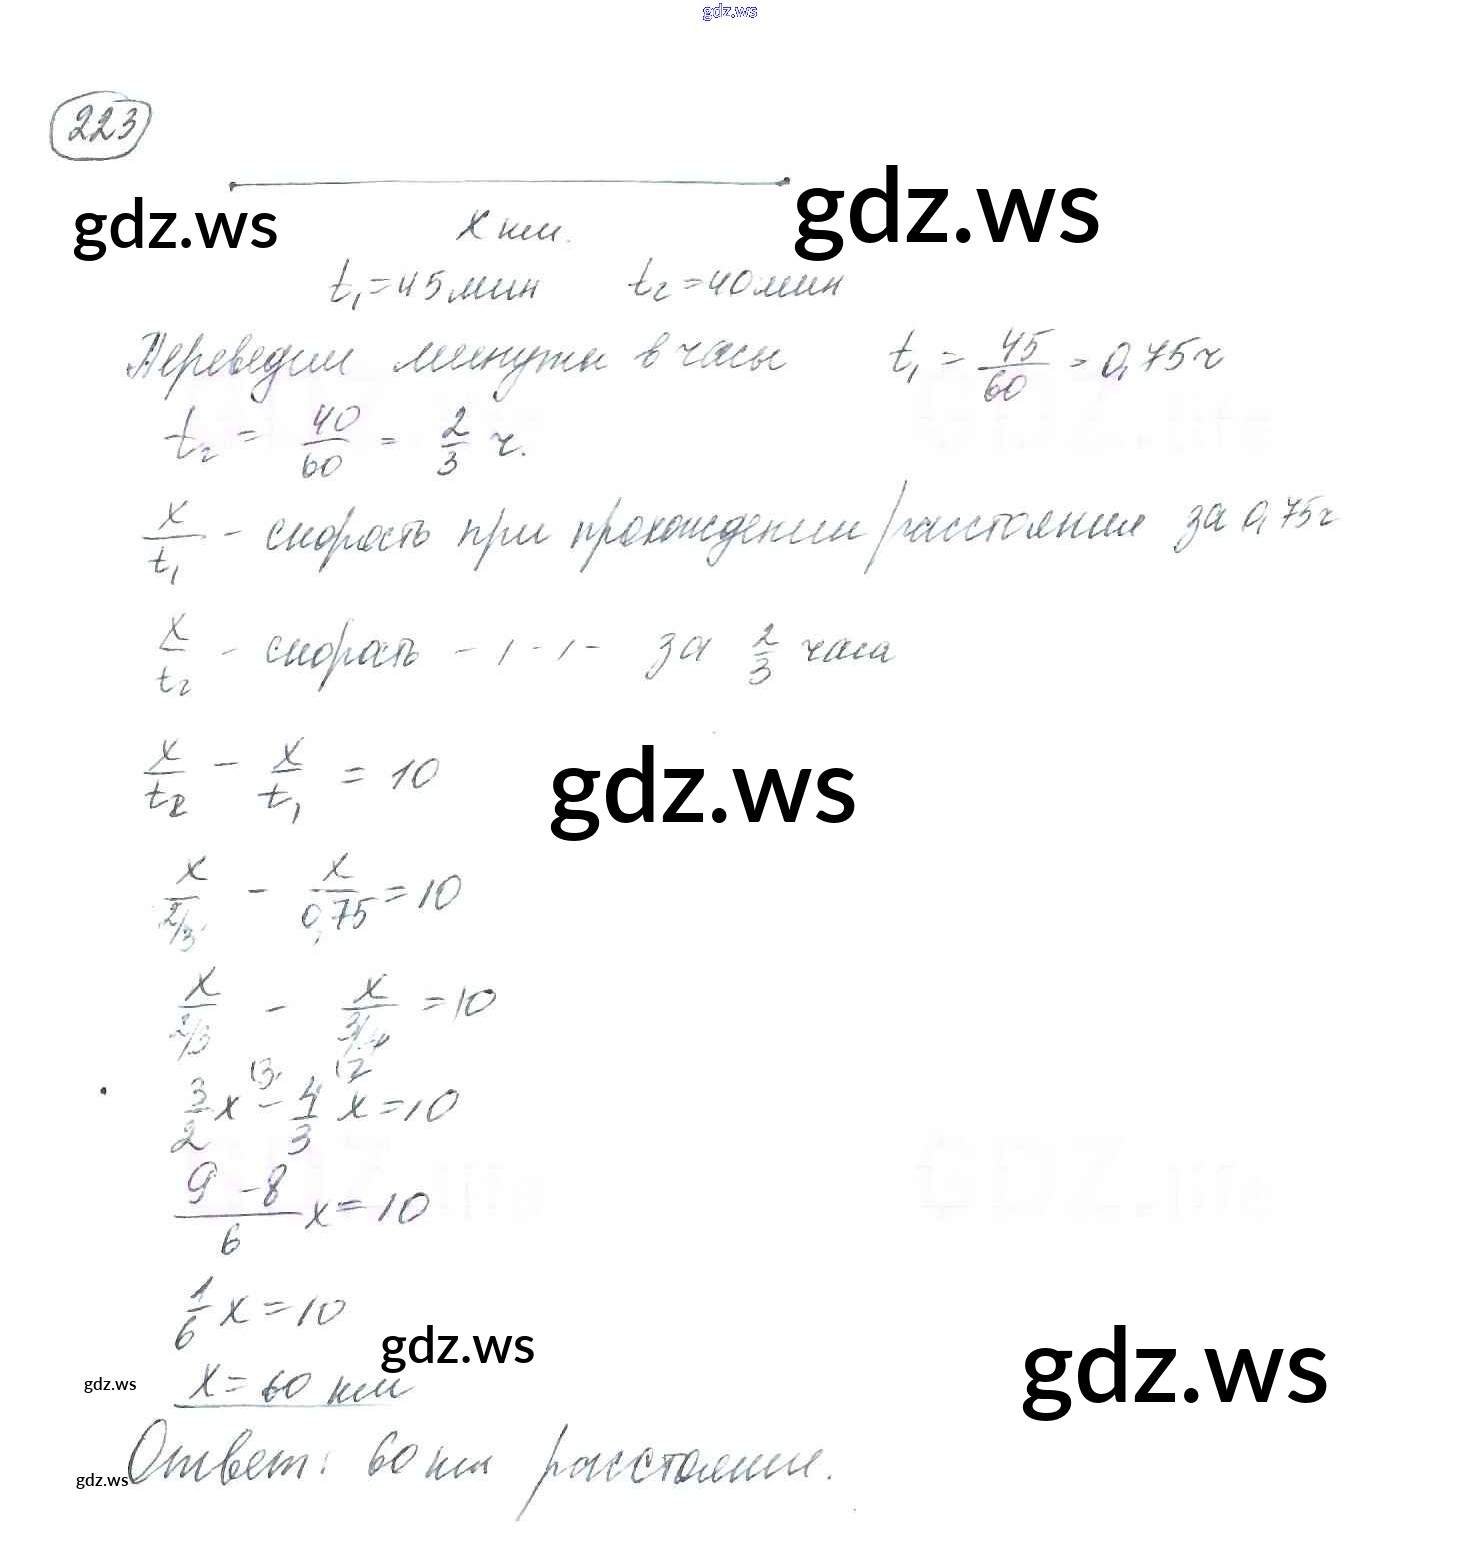 gdz.ws
223
gdz.ws gdz.ws
x км.
t₁ = 45 мин t₂ = 40 мин
Переведем минуты в часы t₁ = 45/60 = 0,75 ч
t₂ = 40/60 = 2/3 ч.
x/t₁ - скорость при прохождении расстояния за 0,75 ч
x/t₂ - скорость - ı - ı - за 2/3 часа
x/t₂ - x/t₁ = 10
gdz.ws
x/(2/3) - x/0,75 = 10
x/(2/3) - x/(3/4) = 10
3/2 x (3 - 4/3 x (2 = 10
(9 - 8)/6 x = 10
1/6 x = 10
gdz.ws gdz.ws
gdz.ws x = 60 км
gdz.ws Ответ: 60 км расстояние.